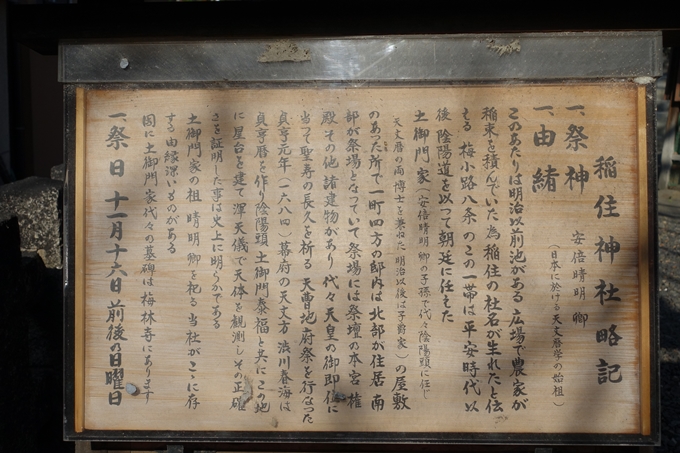 稲住神社略記
一、祭神 安倍晴明卿
(日本に於ける天文暦学の始祖)
一、由緒
このあたりは明治以前池がある広場で農家が
稲束を積んでいた為稲住の社名が生れたと伝
える 梅小路八条のこの一帯は平安時代以
後陰陽道を以って朝廷に仕えた
土御門家(安倍晴明卿の子孫で代々陰陽頭に任じ
天文暦の両博士を兼ねた 明治以後は子爵家)の屋敷
のあった所で一町四方の邸内は北部が住居 南
部が祭場となっていて祭場には祭壇の本宮 権
殿その他諸建物があり代々天皇の御即位に
当って聖寿の長久を祈る天曹地府祭を行なった
貞享元年(一六八四)幕府の天文方渋川春海は
貞享暦を作り陰陽頭土御門泰福と共にこの地
に星台を建て渾天儀で天体を観測しその正確
さを証明した事は史上に明らかである
土御門家の祖晴明卿を祀る当社がここに存
する由縁深いものがある
因に土御門家代々の墓碑は梅林寺にあります
一、祭日 十一月十六日前後の日曜日